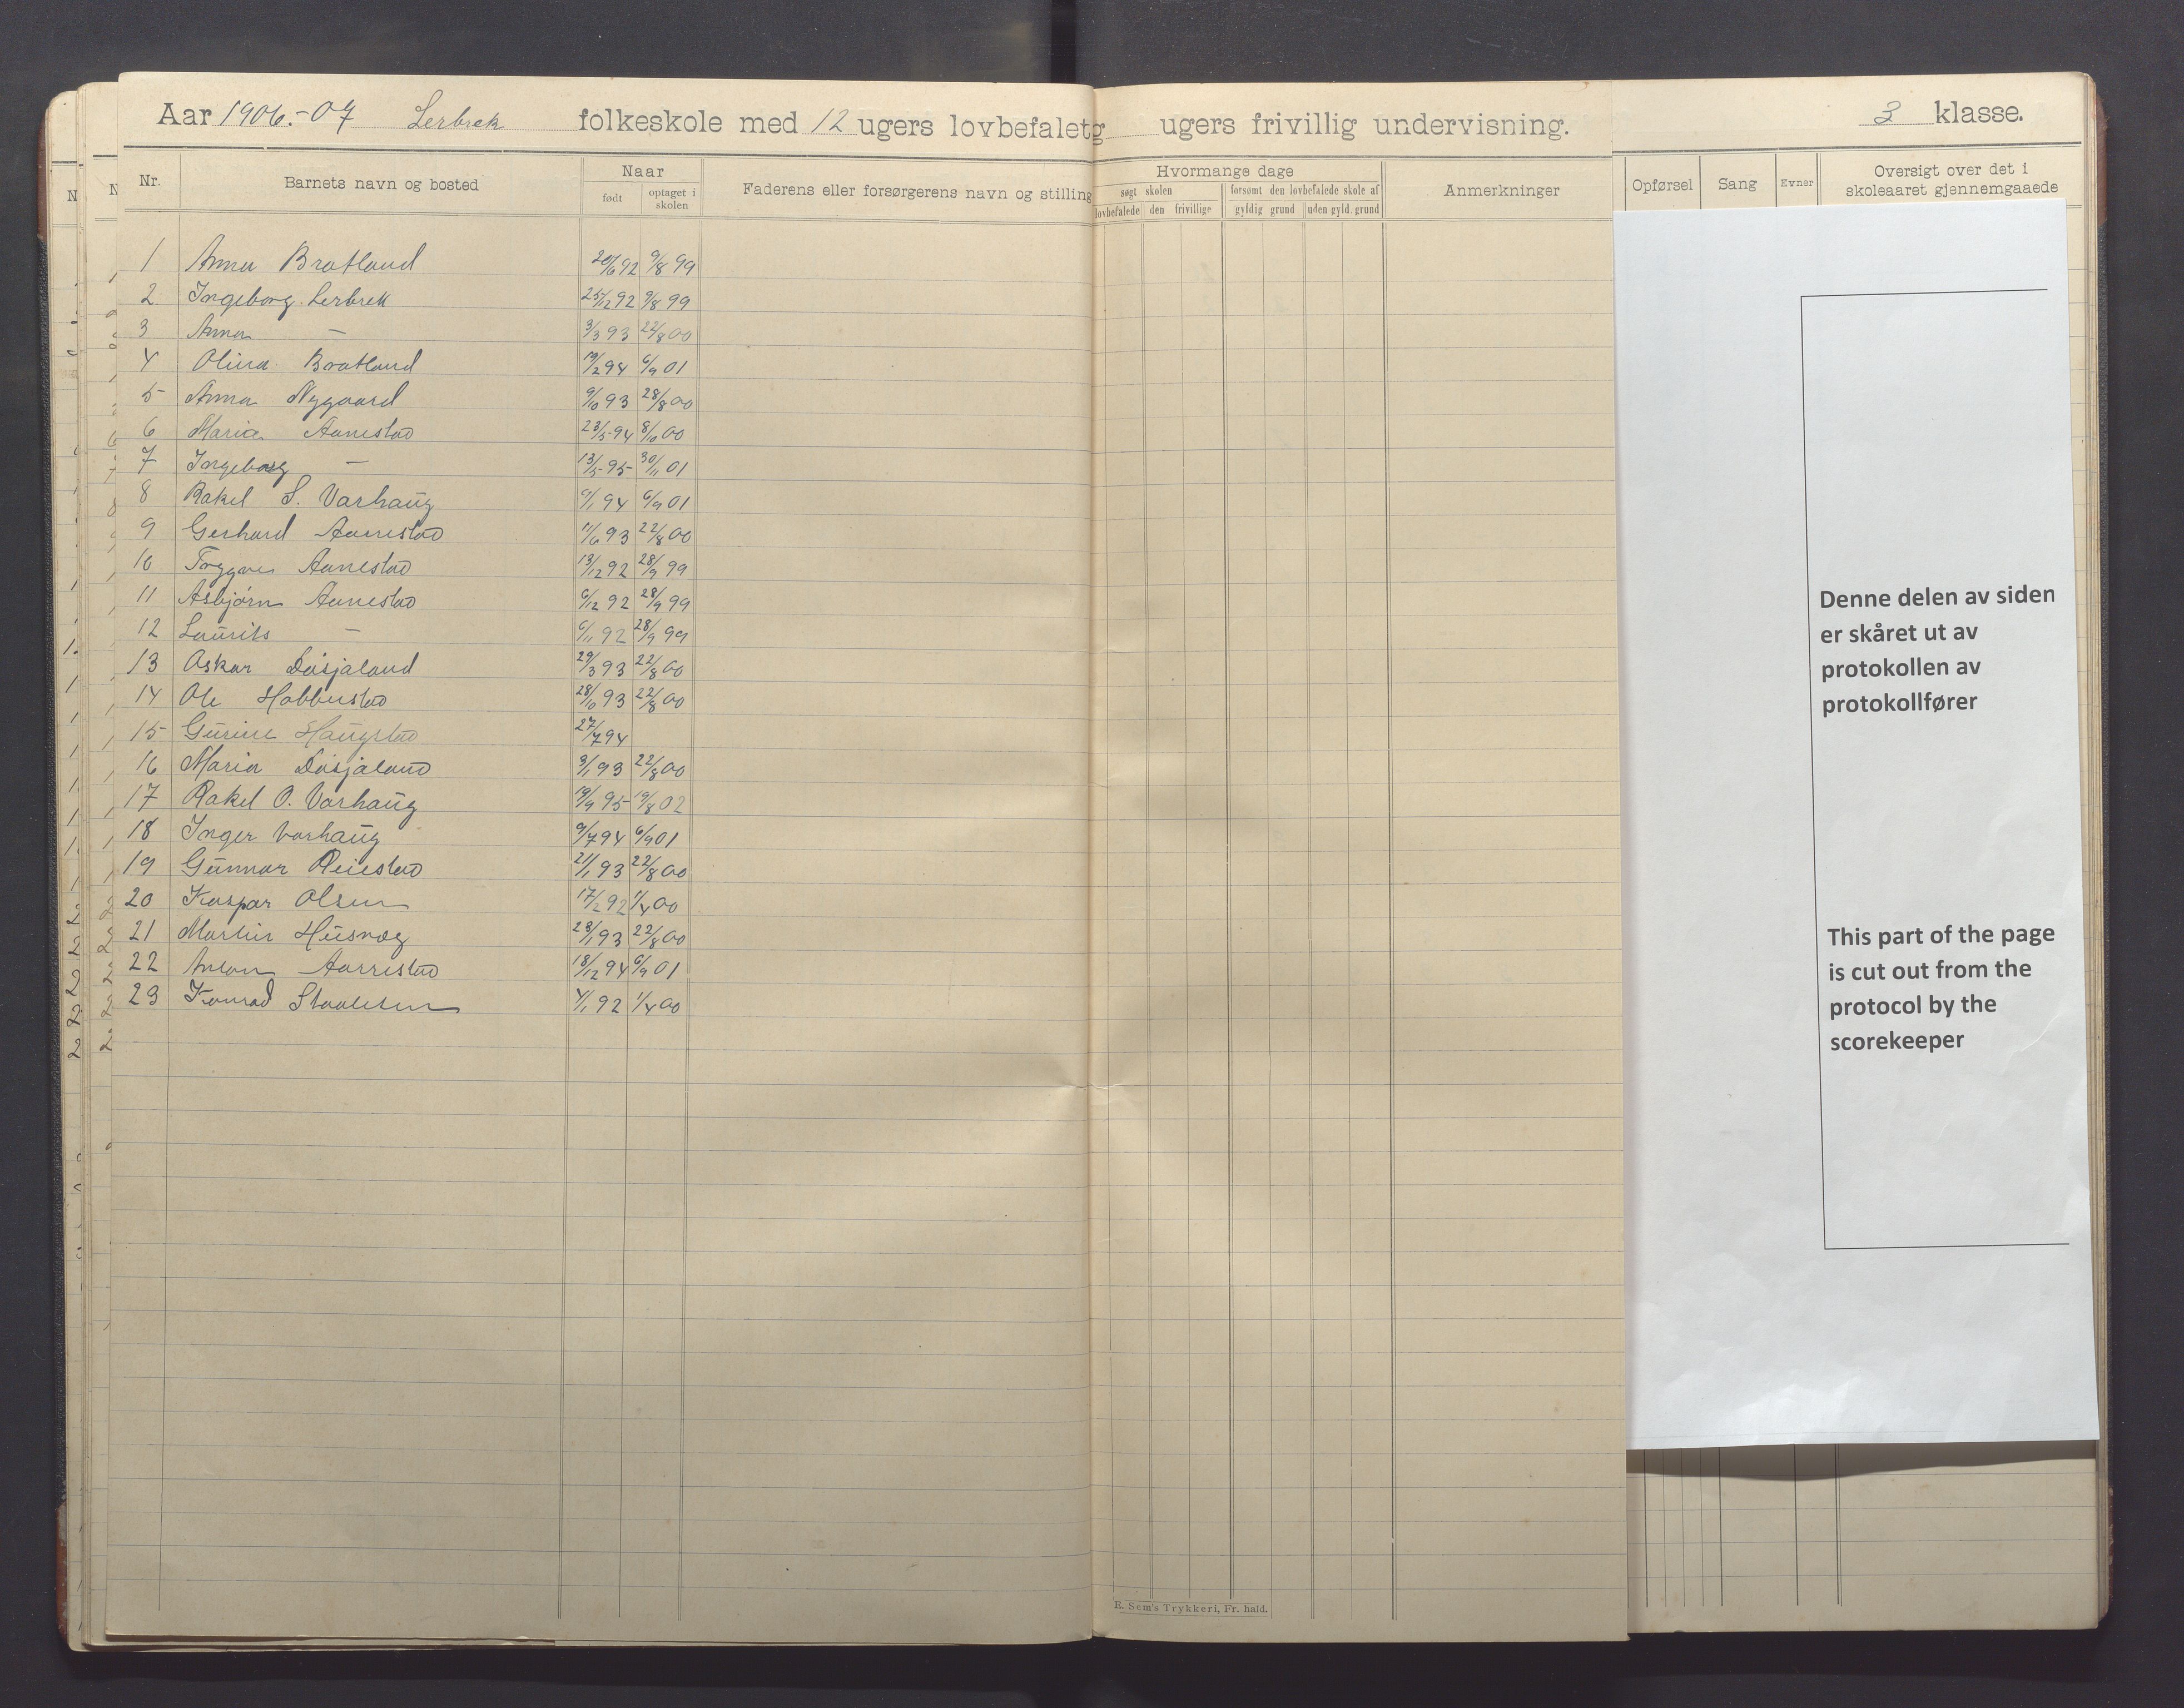 Aar 1906.-07 Lerbrek folkeskole med 12 ugers lovbefalet g ugers frivillig undervisning. 3 klasse.
Nr. Barnets navn og bosted Naar født optaget i skolen Faderens eller forsørgerens navn og stilling Hvormange dage søgt skolen lovbefalede den frivillige forsømt den lovbefalede skole af gyldig grund uden gyld. grund Anmerkninger Opførsel Sang Evner Oversigt over det i skoleaaret gjennemgaaede
1 Anna Bratland 20/6 92 9/8 99
2 Ingeborg Lerbrek 25/12 92 9/8 99
3 Anna — 3/3 93 22/8 00
4 Olina Bratland 19/2 94 6/9 01
5 Anna Nygaard 9/10 93 28/8 00
6 Maria Aanestad 23/5 94 8/10 00
7 Ingeborg — 13/5 95 30/11 01
8 Rakel S. Varhaug 9/1 94 6/9 01
9 Gerhard Aanestad 11/6 93 22/8 00
10 Trygve Aanestad 13/12 92 28/9 99
11 Asbjørn Aanestad 6/12 92 28/9 99
12 Laurits — 6/11 92 28/9 99
13 Askar Døsjaland 29/3 93 22/8 00
14 Ole Habberstad 28/10 93 22/8 00
15 Gurine Haugstad 27/7 94
16 Maria Døsjaland 3/1 93 22/8 00
17 Rakel O. Varhaug 19/9 95 19/8 02
18 Inger Varhaug 9/7 94 6/9 01
19 Gunnar Reiestad 21/1 93 22/8 00
20 Kaspar Olsen 17/2 92 1/4 00
21 Martin Husveg 23/1 93 22/8 00
22 Anton Aarrestad 18/12 94 6/9 01
23 Konrad Staalesen 4/1 92 1/4 00
E. Sem's Trykkeri, Fr. hald.
Denne delen av siden
er skåret ut av
protokollen av
protokollfører
This part of the page
is cut out from the
protocol by the
scorekeeper